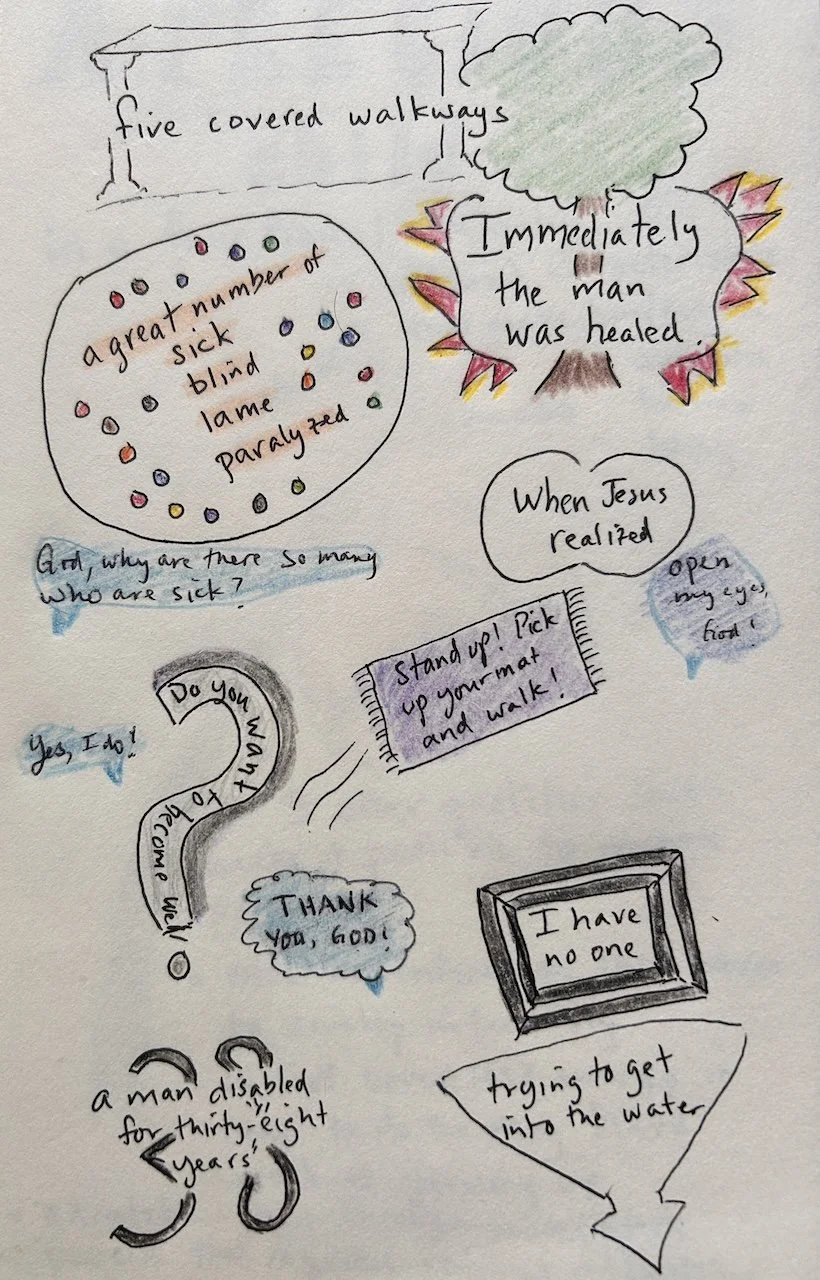 five covered walkways
Immediately
the man
was healed.
a great number of
sick
blind
lame
paralyzed
When Jesus
realized
God, why are there so many
who are sick?
open
my eyes,
God!
Stand up! Pick
up your mat
and walk!
Do you want to become well
Yes, I do!
THANK
YOU, GOD!
I have
no one
a man disabled
for thirty-eight
years
trying to get
into the water
38